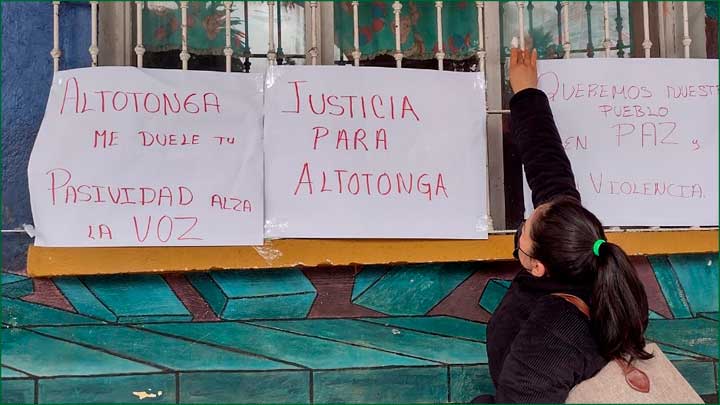 ALTOTONGA
ME DUELE TU
PASIVIDAD ALZA
LA VOZ
JUSTICIA
PARA
ALTOTONGA
QUEREMOS NUEST
PUEBLO
EN PAZ Y
VIOLENCIA.